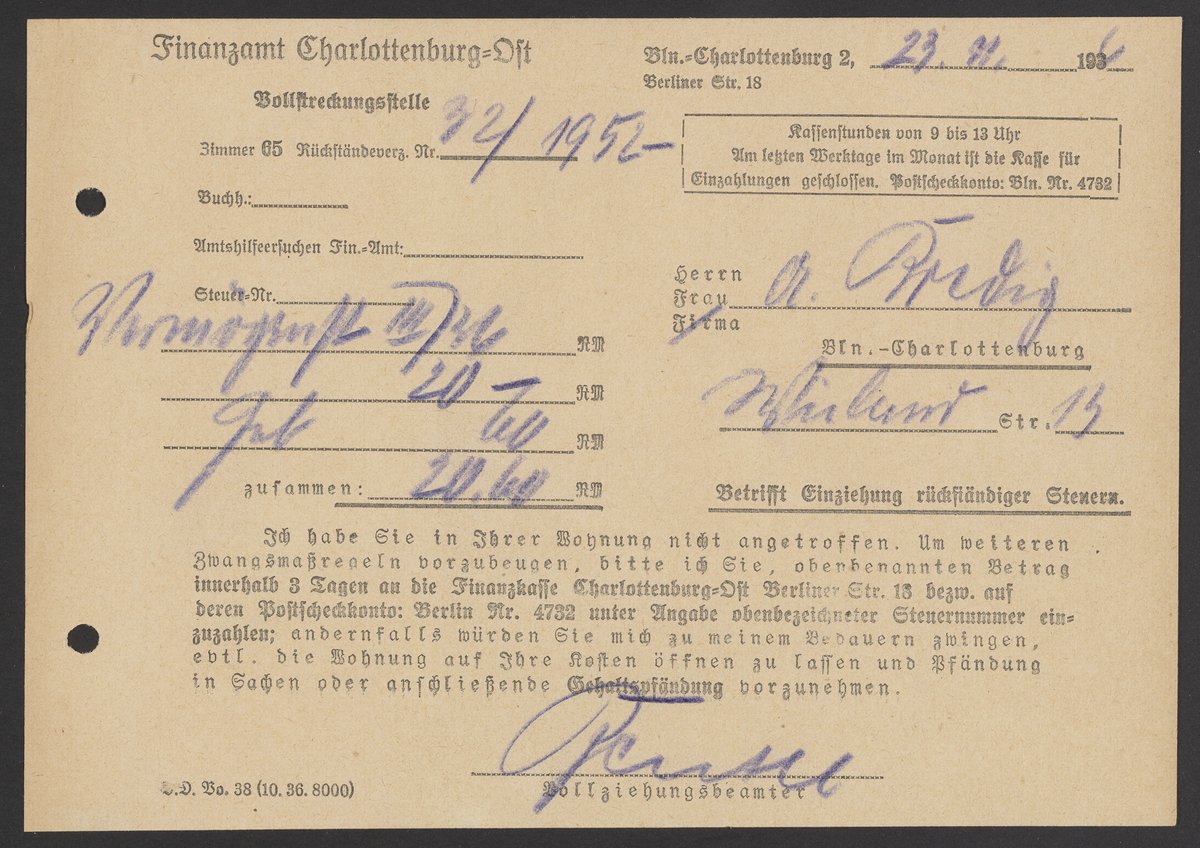 Finanzamt Charlottenburg-Ost
Vollstreckungsstelle
Zimmer 65 Rückständeverz. Nr. 32/1952-
Buchh.:
Amtshilfeersuchen Fin.-Amt:
Steuer-Nr.
Vermögenst III/36 RM
20 - RM
Geb 60 RM
zusammen: 20.60 RM
Bln.-Charlottenburg 2, 23. 11. 1936
Berliner Str. 18
Kassenstunden von 9 bis 13 Uhr
Am letzten Werktage im Monat ist die Kasse für
Einzahlungen geschlossen. Postscheckkonto: Bln. Nr. 4732
Herrn
Frau A. Bredig
Firma
Bln.-Charlottenburg
Wieland Str. 13
Betrifft Einziehung rückständiger Steuern.
Ich habe Sie in Ihrer Wohnung nicht angetroffen. Um weiteren
Zwangsmaßregeln vorzubeugen, bitte ich Sie, obenbenannten Betrag
innerhalb 3 Tagen an die Finanzkasse Charlottenburg-Ost Berliner Str. 18 bezw. auf
deren Postscheckkonto: Berlin Nr. 4732 unter Angabe obenbezeichneter Steuernummer ein-
zuzahlen; andernfalls würden Sie mich zu meinem Bedauern zwingen,
evtl. die Wohnung auf Ihre Kosten öffnen zu lassen und Pfändung
in Sachen oder anschließende Gehaltspfändung vorzunehmen.
Vollziehungsbeamter
Vo. 38 (10. 36. 8000)